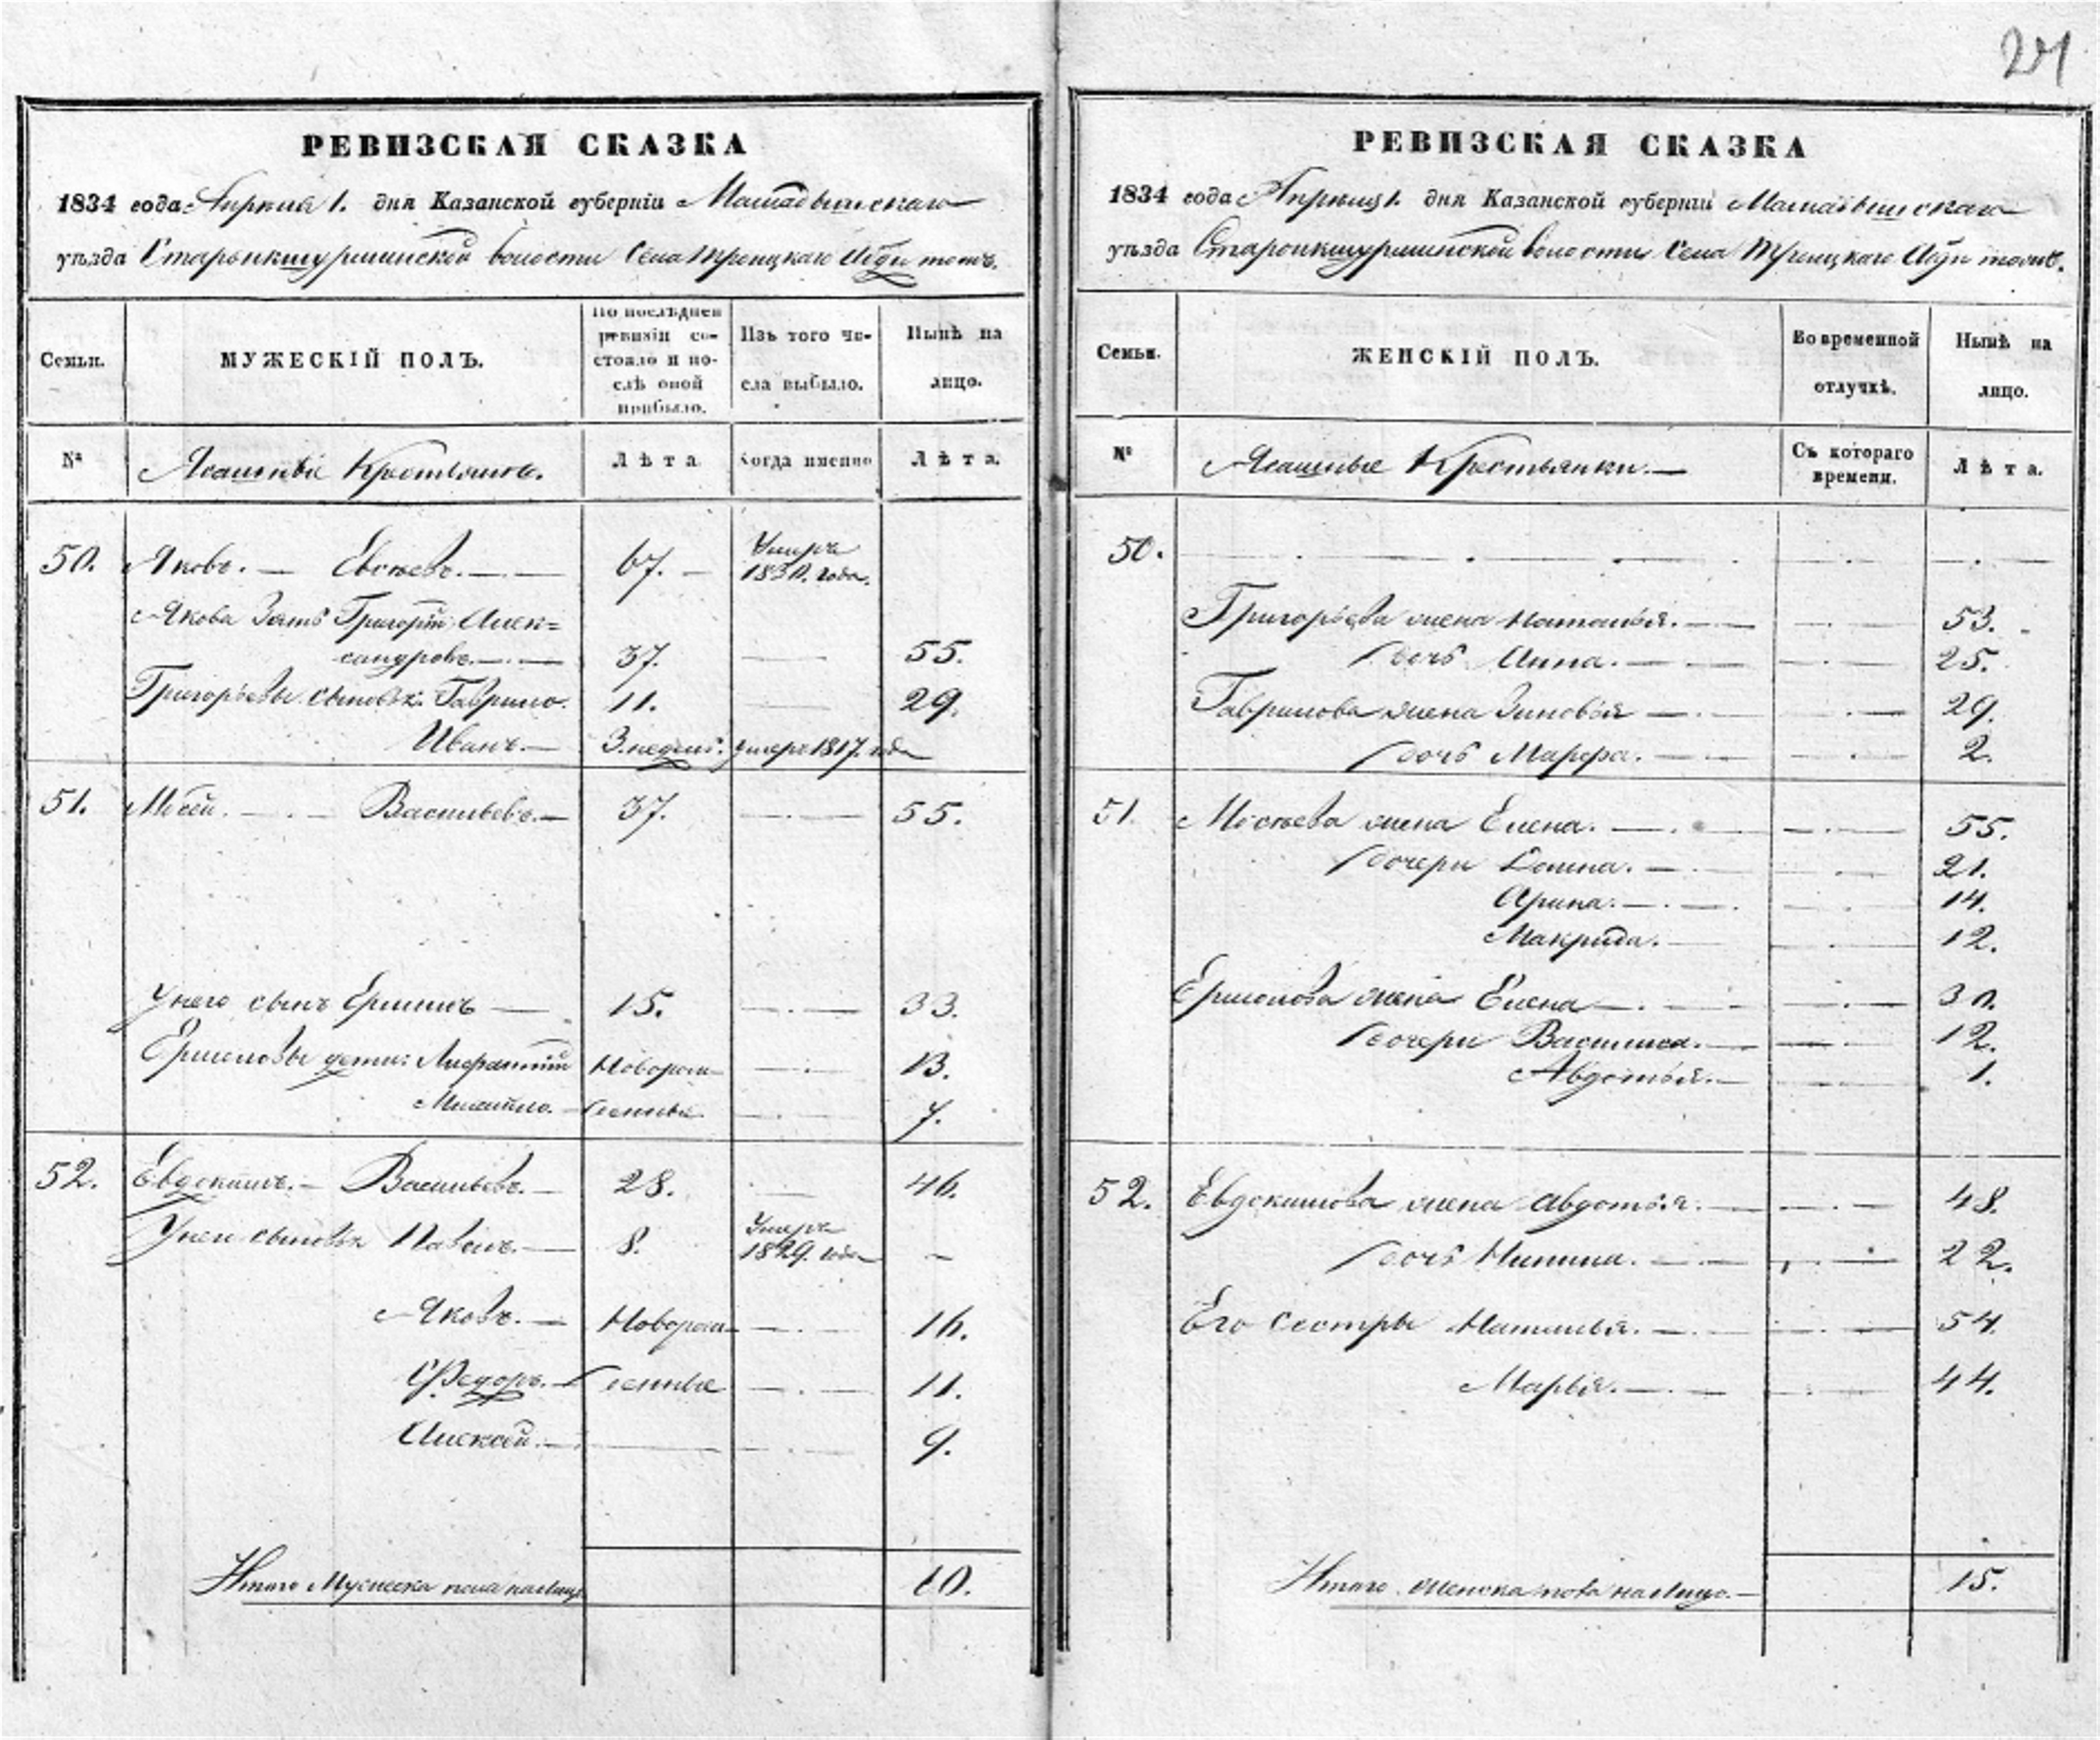 241
РЕВИЗСКАЯ СКАЗКА
1834 года Апреля 1. дня Казанской губерніи Мамадышскаго
уѣзда Старопкшурминской волости Села Троицкаго
Семьи.
МУЖЕСКІЙ ПОЛЪ.
По послѣдней ревизіи состояло и послѣ оной прибыло.
Изъ того числа выбыло.
Нынѣ на лицо.
№
Ясашные Крестьяне.
Лѣта
Когда именно
Лѣта.
50. Яковъ. Евсѣевъ. 67. Умеръ 1830. года.
Якова Зять Григорій Алек=
сандровъ. 37. 55.
Григорьевы сыновья: Гаврило. 11. 29.
Иванъ. 3. недѣль. умеръ 1817. года
51. Мосей. Васильевъ. 37. 55.
У него сынъ Ермилъ 15. 33.
Ермиловы дети: Новорож 13.
Михайло. денные 7.
52. Евдокимъ. Васильевъ. 28. 46.
У него сыновья Павелъ. 8. Умеръ 1829. года
Яковъ. Новорож 16.
Федоръ. денные 11.
Алексей. 9.
Итого Мужеска пола налицо 10.
РЕВИЗСКАЯ СКАЗКА
1834 года Апреля 1. дня Казанской губерніи Мамадышскаго
уѣзда Старопкшурминской волости Села Троицкаго
Семьи.
ЖЕНСКІЙ ПОЛЪ.
Во временной отлучкѣ.
Нынѣ на лицо.
№
Ясашные Крестьянки.
Съ котораго времени.
Лѣта.
50.
Григорьева жена Наталья. 53.
дочь Анна. 25.
Гаврилова жена Зиновья 29.
дочь Марфа. 2.
51. Мосѣева жена Елена. 55.
дочери 21.
Арина. 14.
Макрида. 12.
Ермолова жена Елена 30.
дочери Василиса. 12.
Авдотья. 1.
52. Евдокимова жена Авдотья. 48.
дочь 22.
Его Сестры Наталья. 54.
Марья. 44.
Итого женска пола налицо. 15.